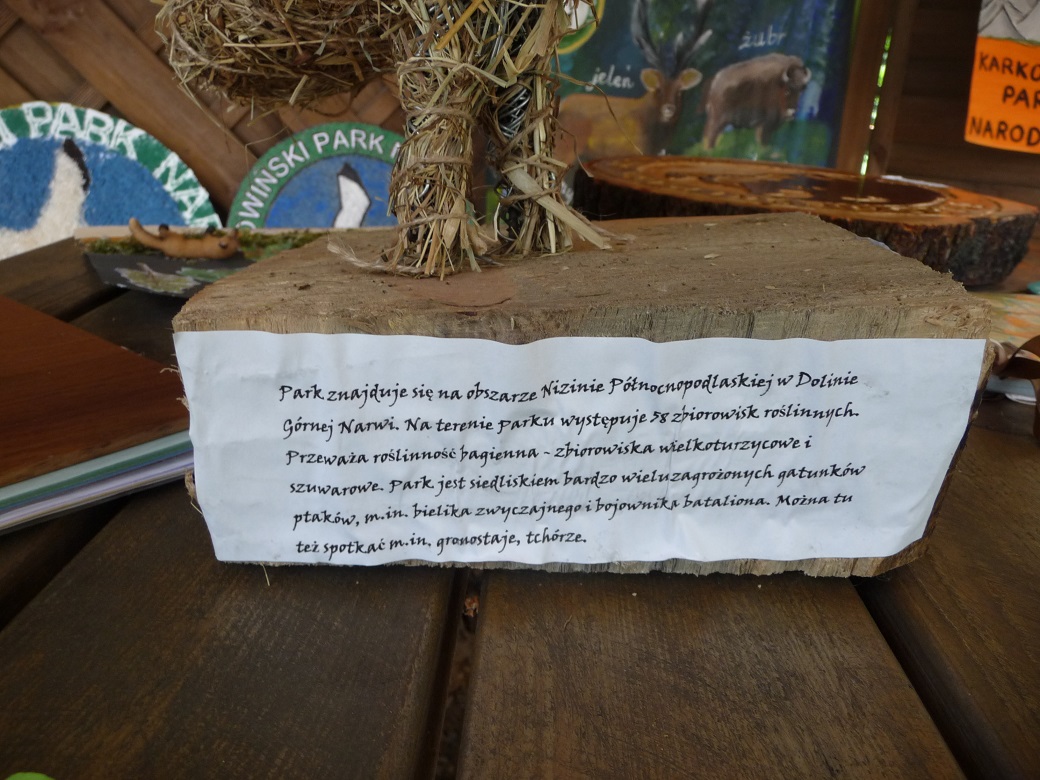 jeleń
żubr
KARKO
PAR
NAROD
I PARK NA
OWIŃSKI PARK N
Park znajduje się na obszarze Nizinie Północnopodlaskiej w Dolinie
Górnej Narwi. Na terenie Parku występuje 58 zbiorowisk roślinnych.
Przeważa roślinność bagienna - zbiorowiska wielkoturzycowe i
szuwarowe. Park jest siedliskiem bardzo wieluzagrożonych gatunków
ptaków, m.in. bielika zwyczajnego i bojownika bataliona. Można tu
też spotkać m.in. gronostaje, tchórze.